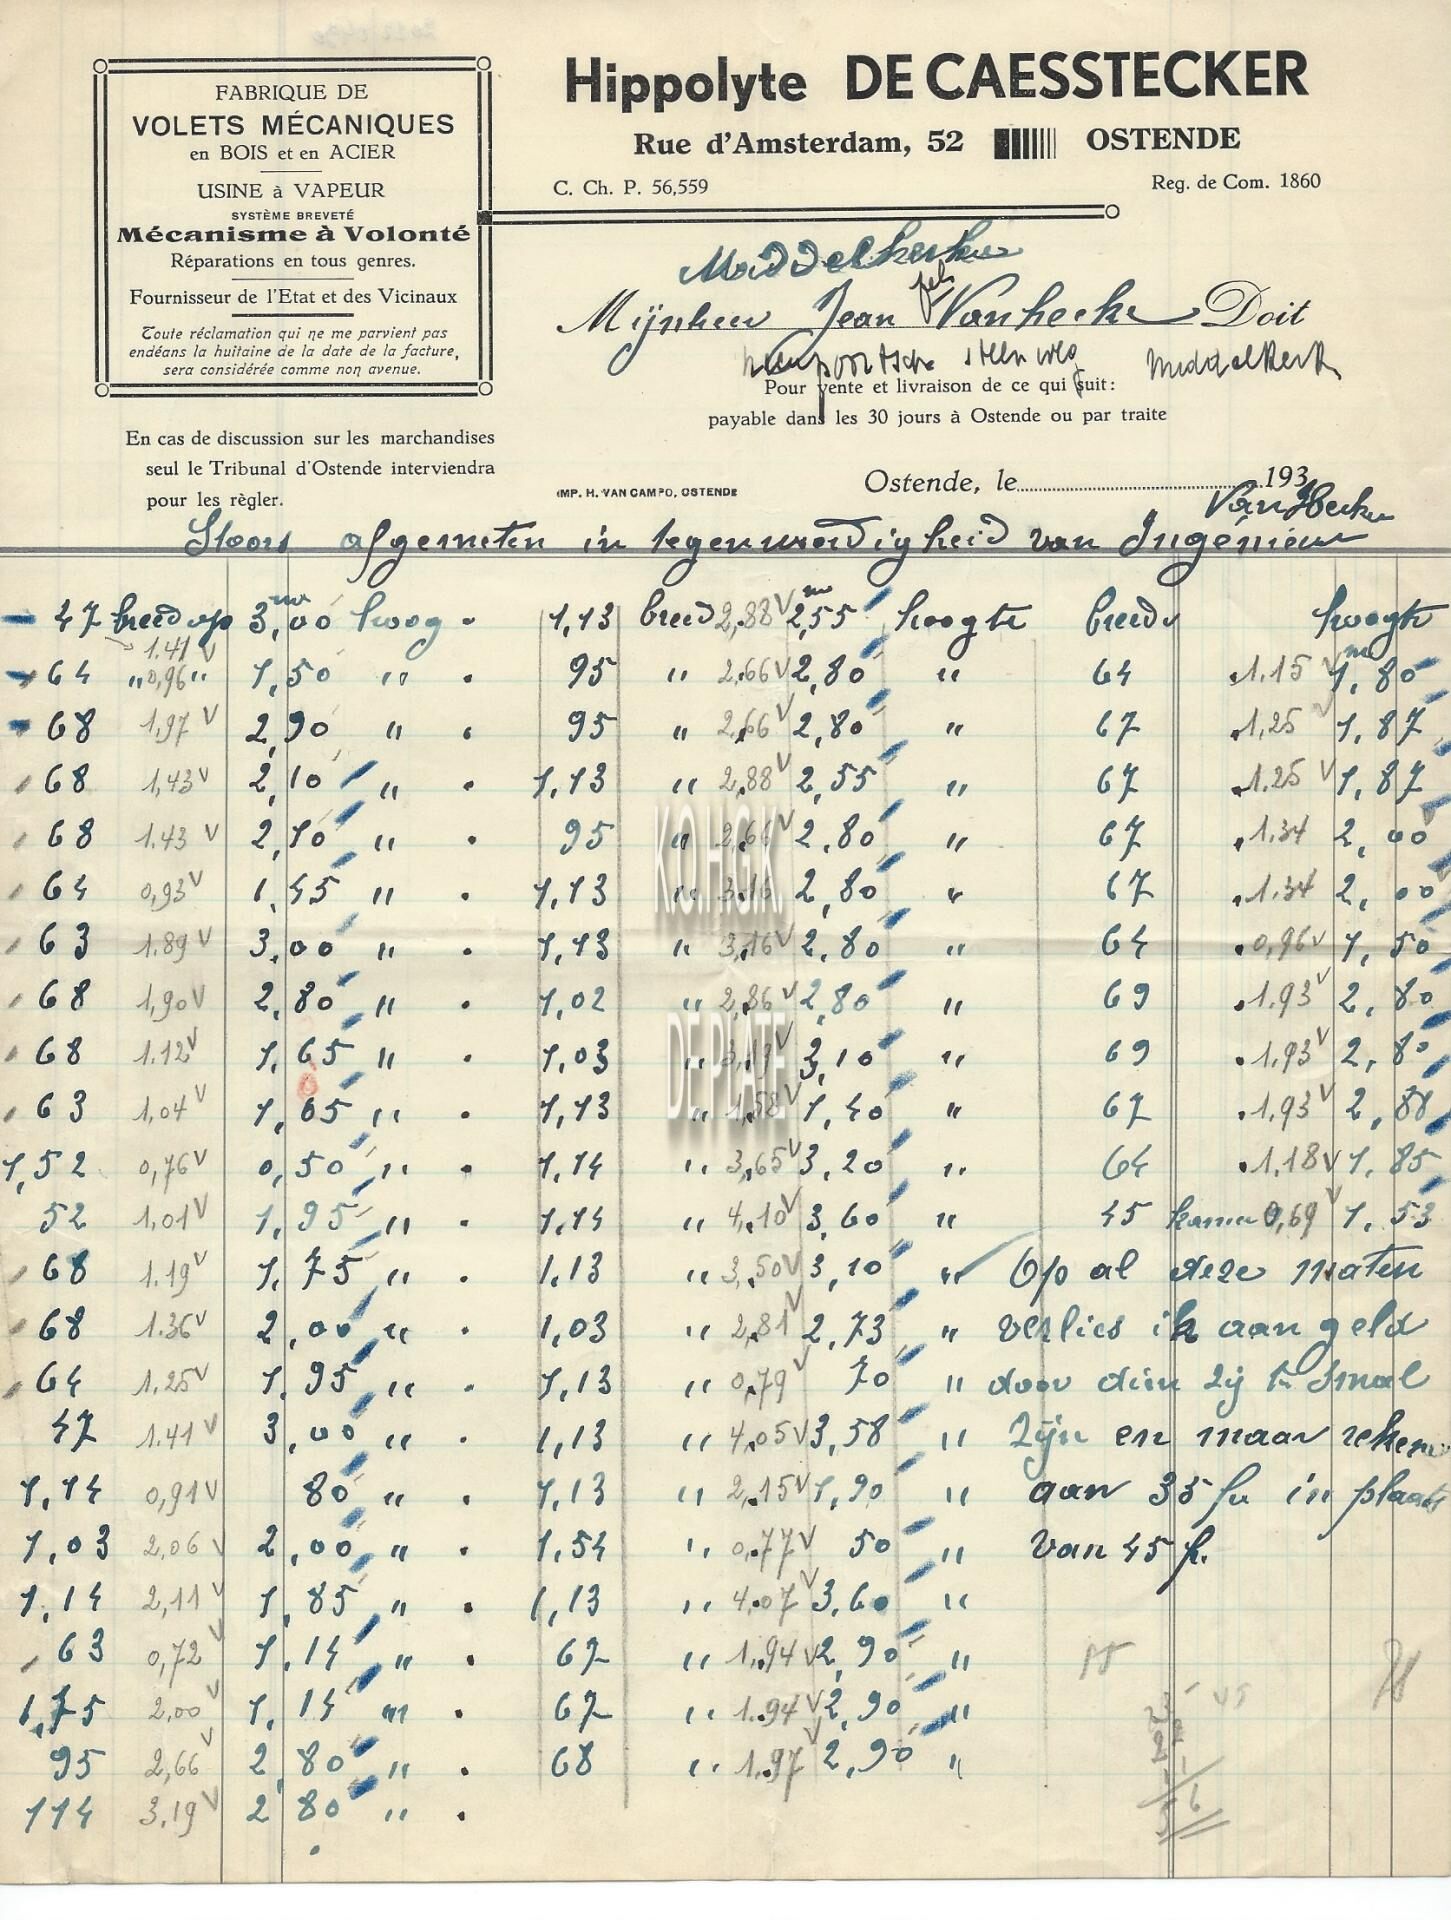 FABRIQUE DE
VOLETS MÉCANIQUES
en BOIS et en ACIER
USINE à VAPEUR
SYSTÈME BREVETÉ
Mécanisme à Volonté
Réparations en tous genres.
Fournisseur de l'Etat et des Vicinaux
Toute réclamation qui ne me parvient pas
endéans la huitaine de la date de la facture,
sera considérée comme non avenue.
Hippolyte DE CAESSTECKER
Rue d'Amsterdam, 52 OSTENDE
C. Ch. P. 56,559 Reg. de Com. 1860
Middelkerke
Mijnheer Jean Vanhecke Doit
nieupoortsche steenweg Middelkerk
Pour vente et livraison de ce qui suit:
payable dans les 30 jours à Ostende ou par traite
En cas de discussion sur les marchandises
seul le Tribunal d'Ostende interviendra
pour les règler.
IMP. H. VAN CAMPO, OSTENDE
Ostende, le 193
Van Hecke
Stoors afgemeten in tegenwoordigheid van Ingénieur
47 breed op 3,00 hoog . 1,13 breed 2,88 V 2,55 hoogte breed hoogte
1.41 V
64 " 0,96 " 1,50 " . 95 " 2,66 V 2,80 " 64 1.15 V 1,80
68 1,97 V 2,90 " . 95 " 2,66 V 2,80 " 67 1,25 V 1,87
68 1,43 V 2,10 " . 1,13 " 2,88 V 2,55 " 67 1.25 V 1,87
68 1.43 V 2,10 " . 95 " 2,66 V 2,80 " 67 1.34 2,00
64 0,93 V 1,45 " . 1,13 " 3,16 2,80 " 67 1.34 2,00
63 1,89 V 3,00 " . 1,13 " 3,16 V 2,80 " 64 0,96 V 1,50
68 1,90 V 2,80 " . 1,02 " 2,86 V 2,80 " 69 1.93 V 2,80
68 1.12 V 1,65 " . 1,03 " 3,19 V 3,10 " 69 1,93 V 2,80
63 1,04 V 1,65 " . 1,13 " 1,58 V 1,40 " 67 1,93 V 2,88
1,52 0,76 V 0,50 " . 1,14 " 3,65 V 3,20 " 64 1,18 V 1,85
52 1,01 V 1,95 " . 1,14 " 4,10 V 3,60 " 45 0,69 V 1,53
68 1.19 V 1,75 " . 1,13 " 3,50 V 3,10 " Op al deze maten
68 1.36 V 2,00 " . 1,03 " 2,81 V 2,73 " verlies ik aan geld
64 1.25 V 1,95 " . 1,13 " 0,79 V 70 " door dien zij te smal
47 1.41 V 3,00 " . 1,13 " 4,05 V 3,58 " zijn en maar reken
1,14 0,91 V 80 " . 1,13 " 2,15 V 1,90 " aan 35 fr in plaats
1,03 2,06 V 2,00 " . 1,54 " 0,77 V 50 " van 45 fr.
1,14 2,11 V 1,85 " . 1,13 " 4,07 V 3,60 "
63 0,72 V 1,14 " . 67 " 1.94 V 2,90 "
1,75 2,00 V 1,14 " . 67 " 1.94 V 2,90 "
95 2,66 V 2,80 " . 68 " 1.97 V 2,90 "
114 3,19 V 2,80 " .
K.O.H.G.K.
DE PLATE